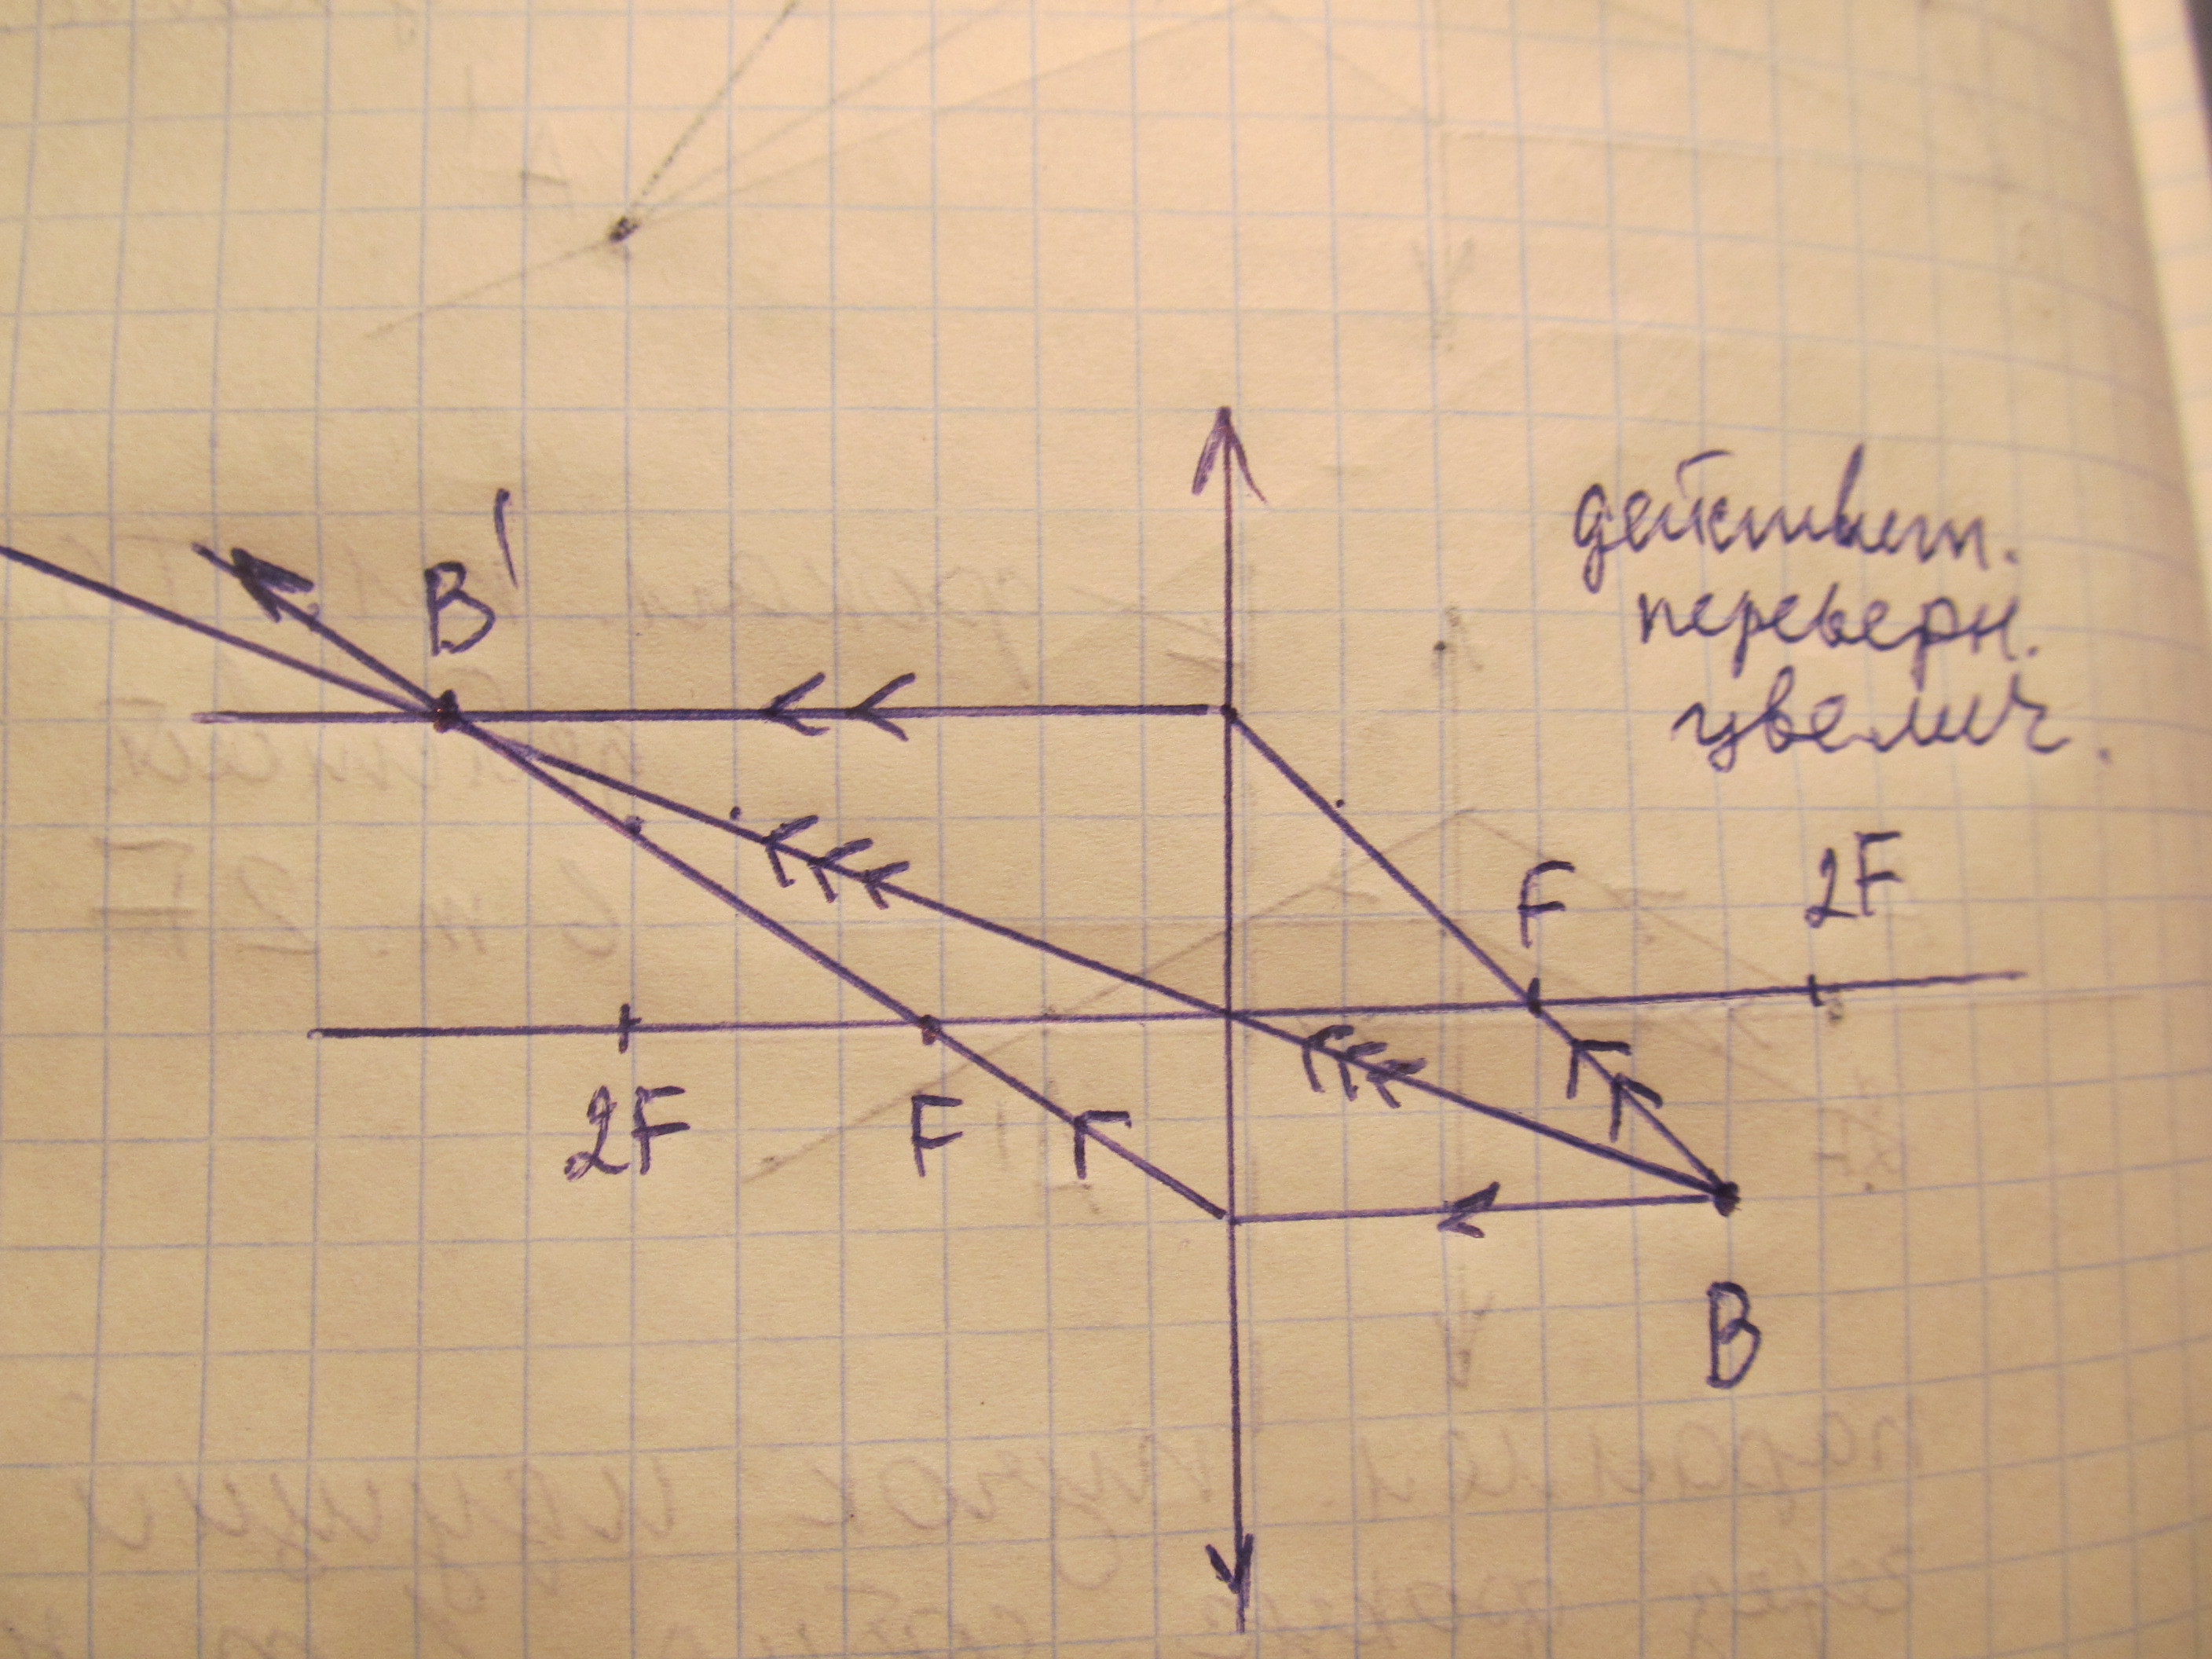 B'
действит.
переверн.
увелич.
F
2F
2F
F
B